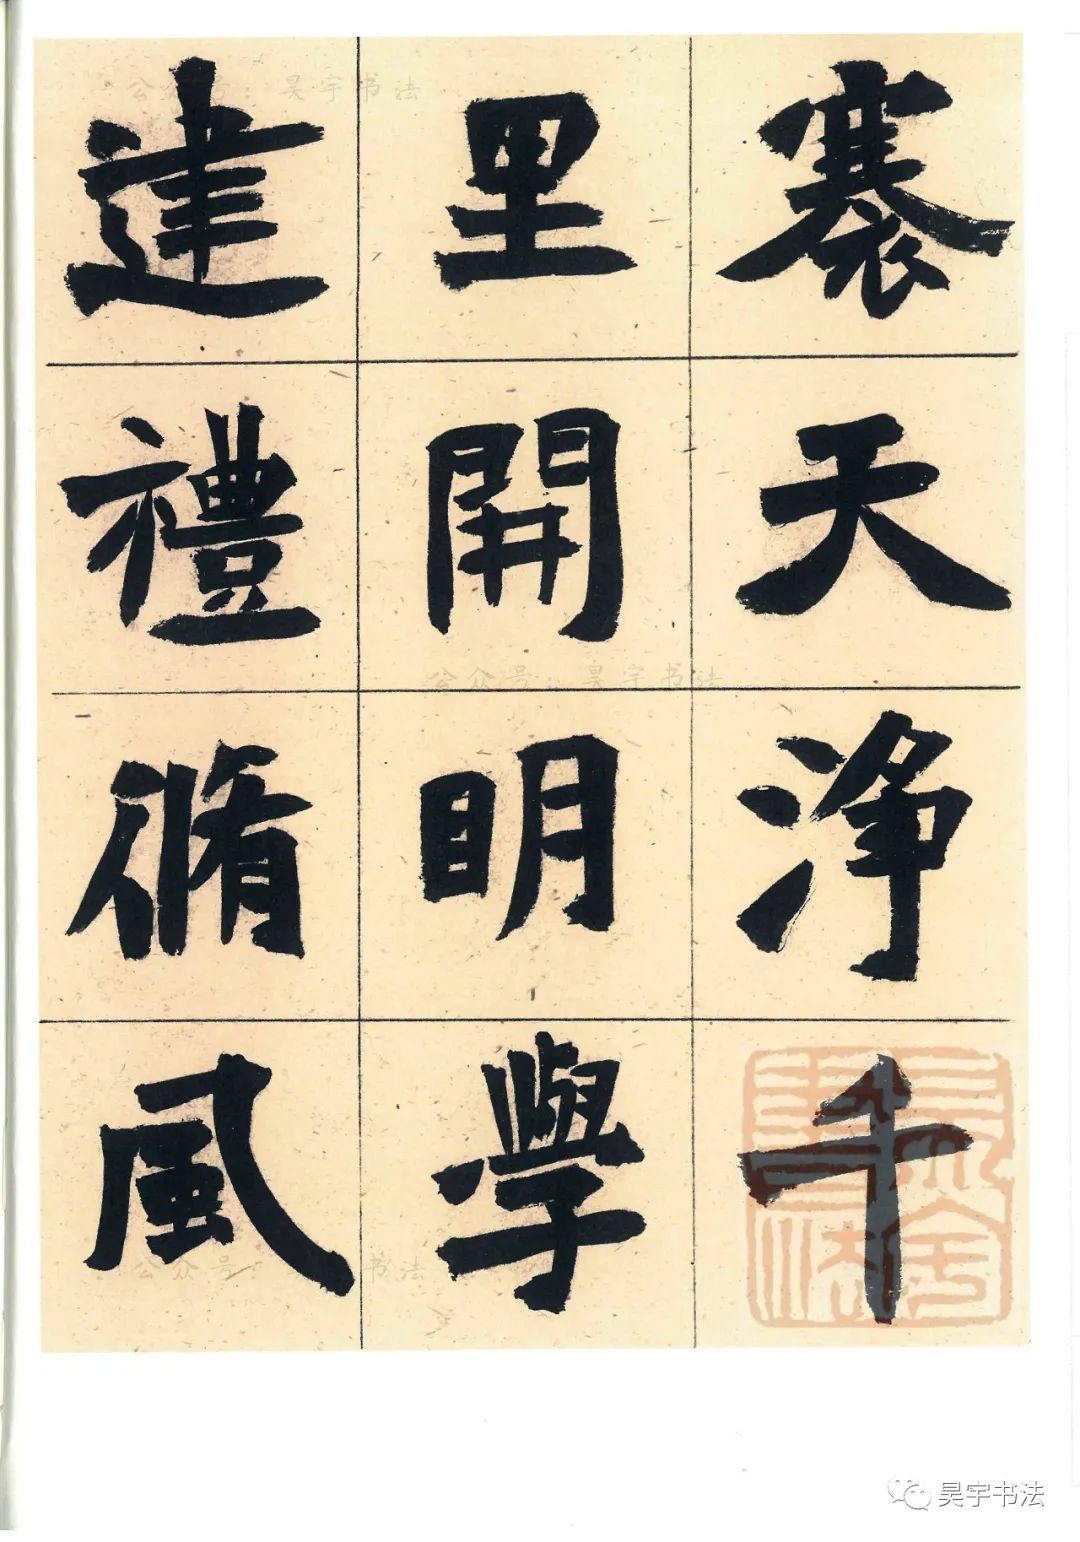 褰天浄千
里開眀學
建禮脩風
公众号：昊宇书法
公众号：昊宇书法
公众号 书法
昊宇书法